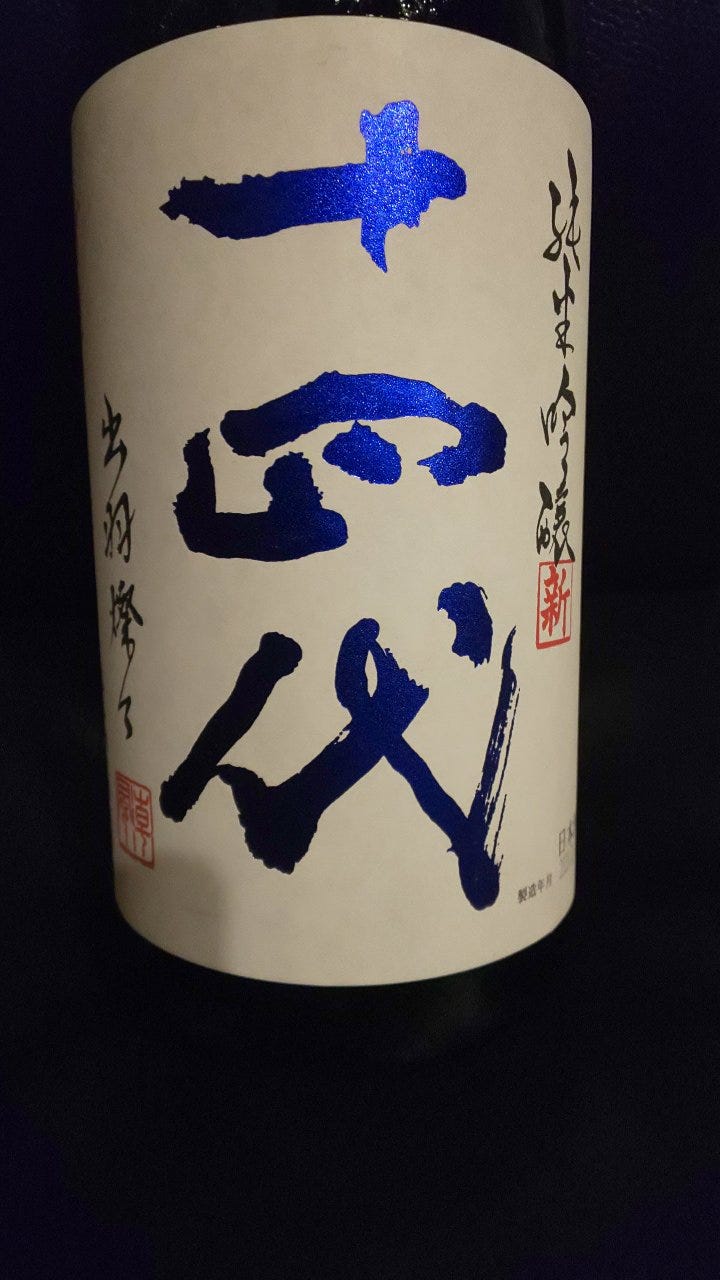 純米吟醸
新
十四代
出羽燦々
製造年月
日本